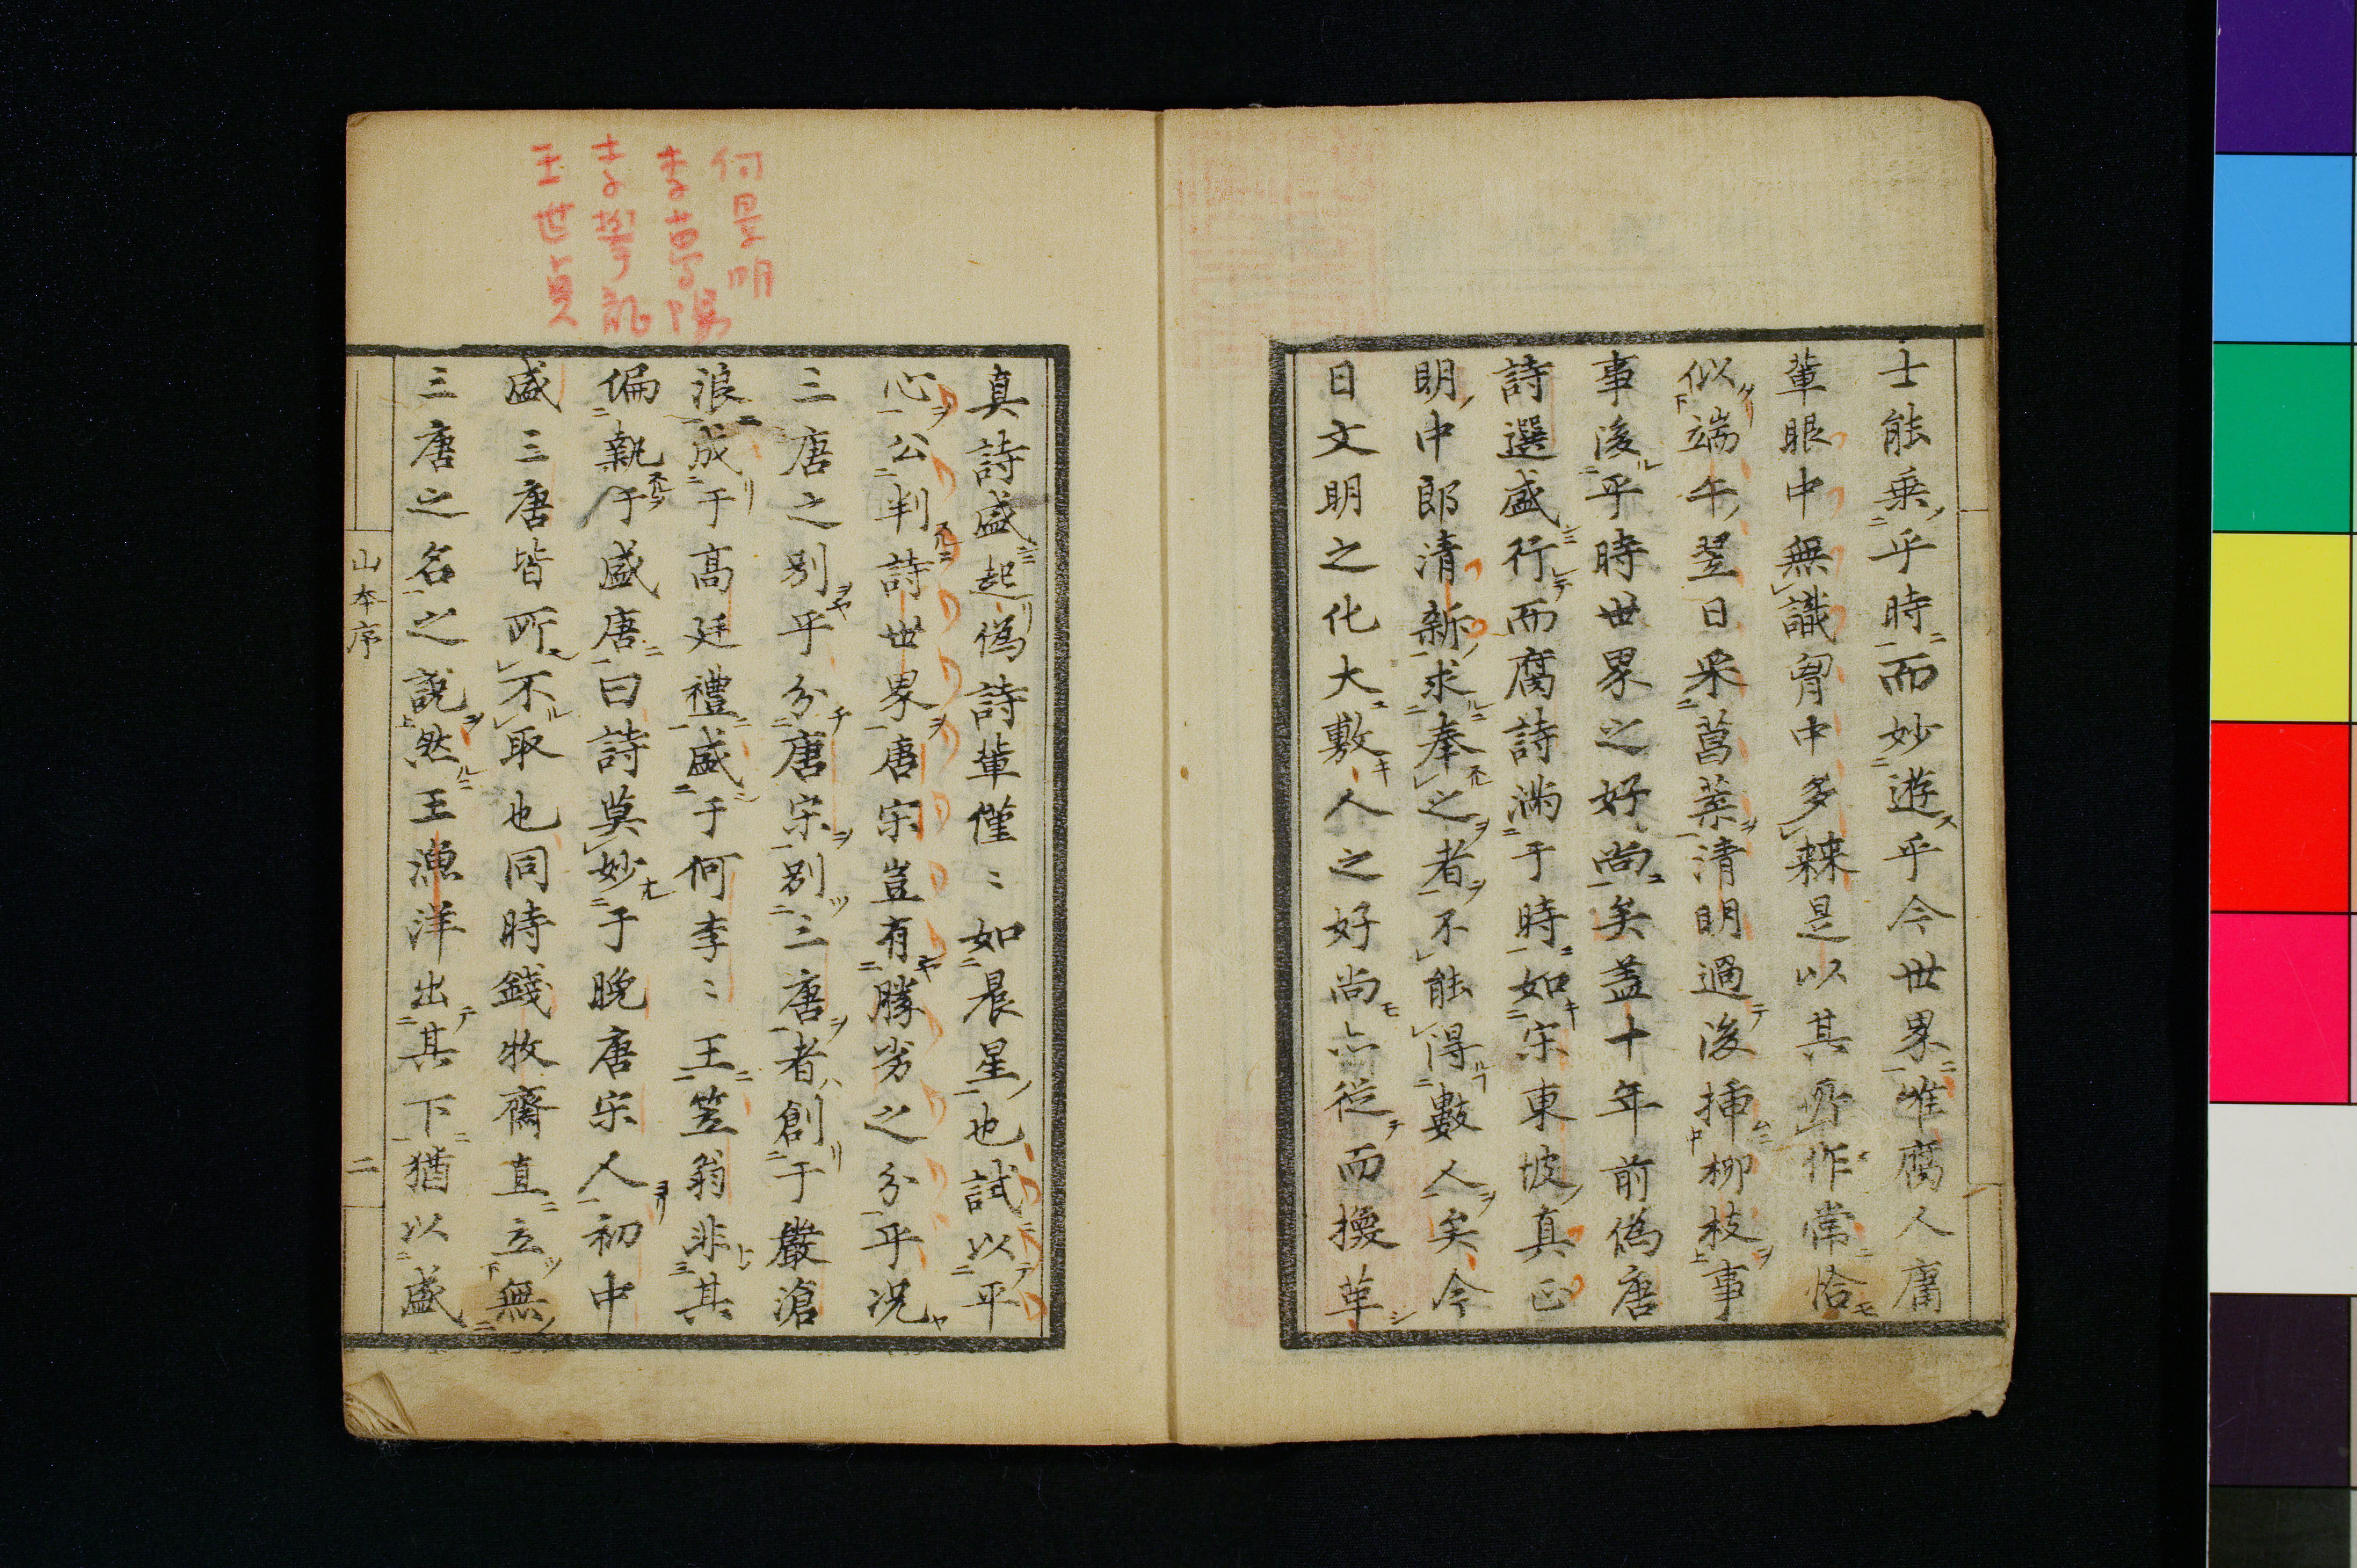 士能乗乎時而妙遊乎今世界唯腐人庸
輩眼中無識胷中多棘是以其所作常恰
似端午翌日采菖葉清明過後挿柳枝事
事後乎時世界之好尚矣蓋十年前偽唐
詩選盛行而腐詩満于時如宋東坡真正
明中郎清新求奉之者不能得數人矣今
日文明之化大敷人之好尚亦従而換革
何景明
李夢陽
李攀龍
王世貞
真詩盛起偽詩輩僅〻如晨星也試以平
心公判詩世界唐宋豈有勝劣之分乎况
三唐之别乎分唐宋别三唐者創于嚴滄
浪成于高廷禮盛于何李〻王笠翁非其
偏執于盛唐曰詩莫妙于晩唐宋人初中
盛三唐皆所不取也同時錢牧齋直立無
三唐之名之説然王漁洋出其下猶以盛
山本序
二